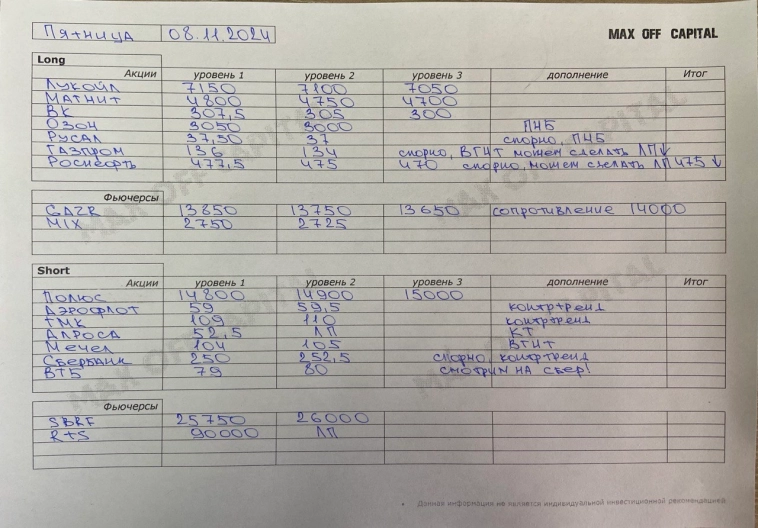 Пятница 08.11.2024 MAX OFF CAPITAL
Long
Акции уровень 1 уровень 2 уровень 3 дополнение Итог
Лукойл 7150 7100 7050
Магнит 4800 4750 4700
ВК 307,5 305 300
Озон 3050 3000 ПЧБ
Русал 37,50 37 спорно, ПЧБ
Газпром 136 134 спорно, ВГИТ может сделать ЛП↓
Роснефть 477,5 475 470 спорно, может сделать ЛП 475 ↓
Фьючерсы
GAZR 13850 13750 13650 сопротивление 14000
MIX 2750 2725
Short
Акции уровень 1 уровень 2 уровень 3 дополнение Итог
Полюс 14800 14900 15000
Аэрофлот 59 59,5 контртренд
ТМК 109 110 контртренд
Алроса 52,5 ЛП КТ
Мечел 104 105 ВГИТ
Сбербанк 250 252,5 спорно, контртренд
ВТБ 79 80 смотрим на сбер!
Фьючерсы
SBRF 25750 26000
RTS 90000 ЛП
• Данная информация не является индивидуальной инвестиционной рекомендацией